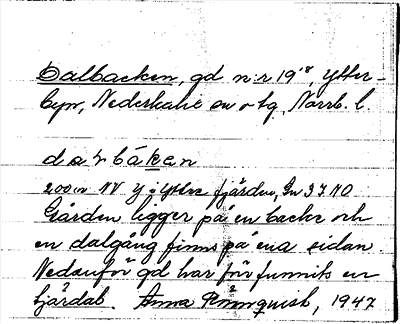 Dalbacken, gd n:r 19¹⁸, Ytter-
byn, Nederkalix sn o tg, Norrb. l.
200 m NV Y i Yttre fjärden,
Gården ligger på en backe och
en dalgång finns på ena sidan
Nedanför gd har förr funnits en
tjärdal. Anna 1947